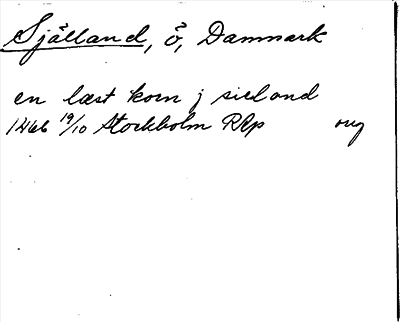 Själland, ö, Danmark
en læst korn j sieland
1466 19/10 Stockholm RAp orig